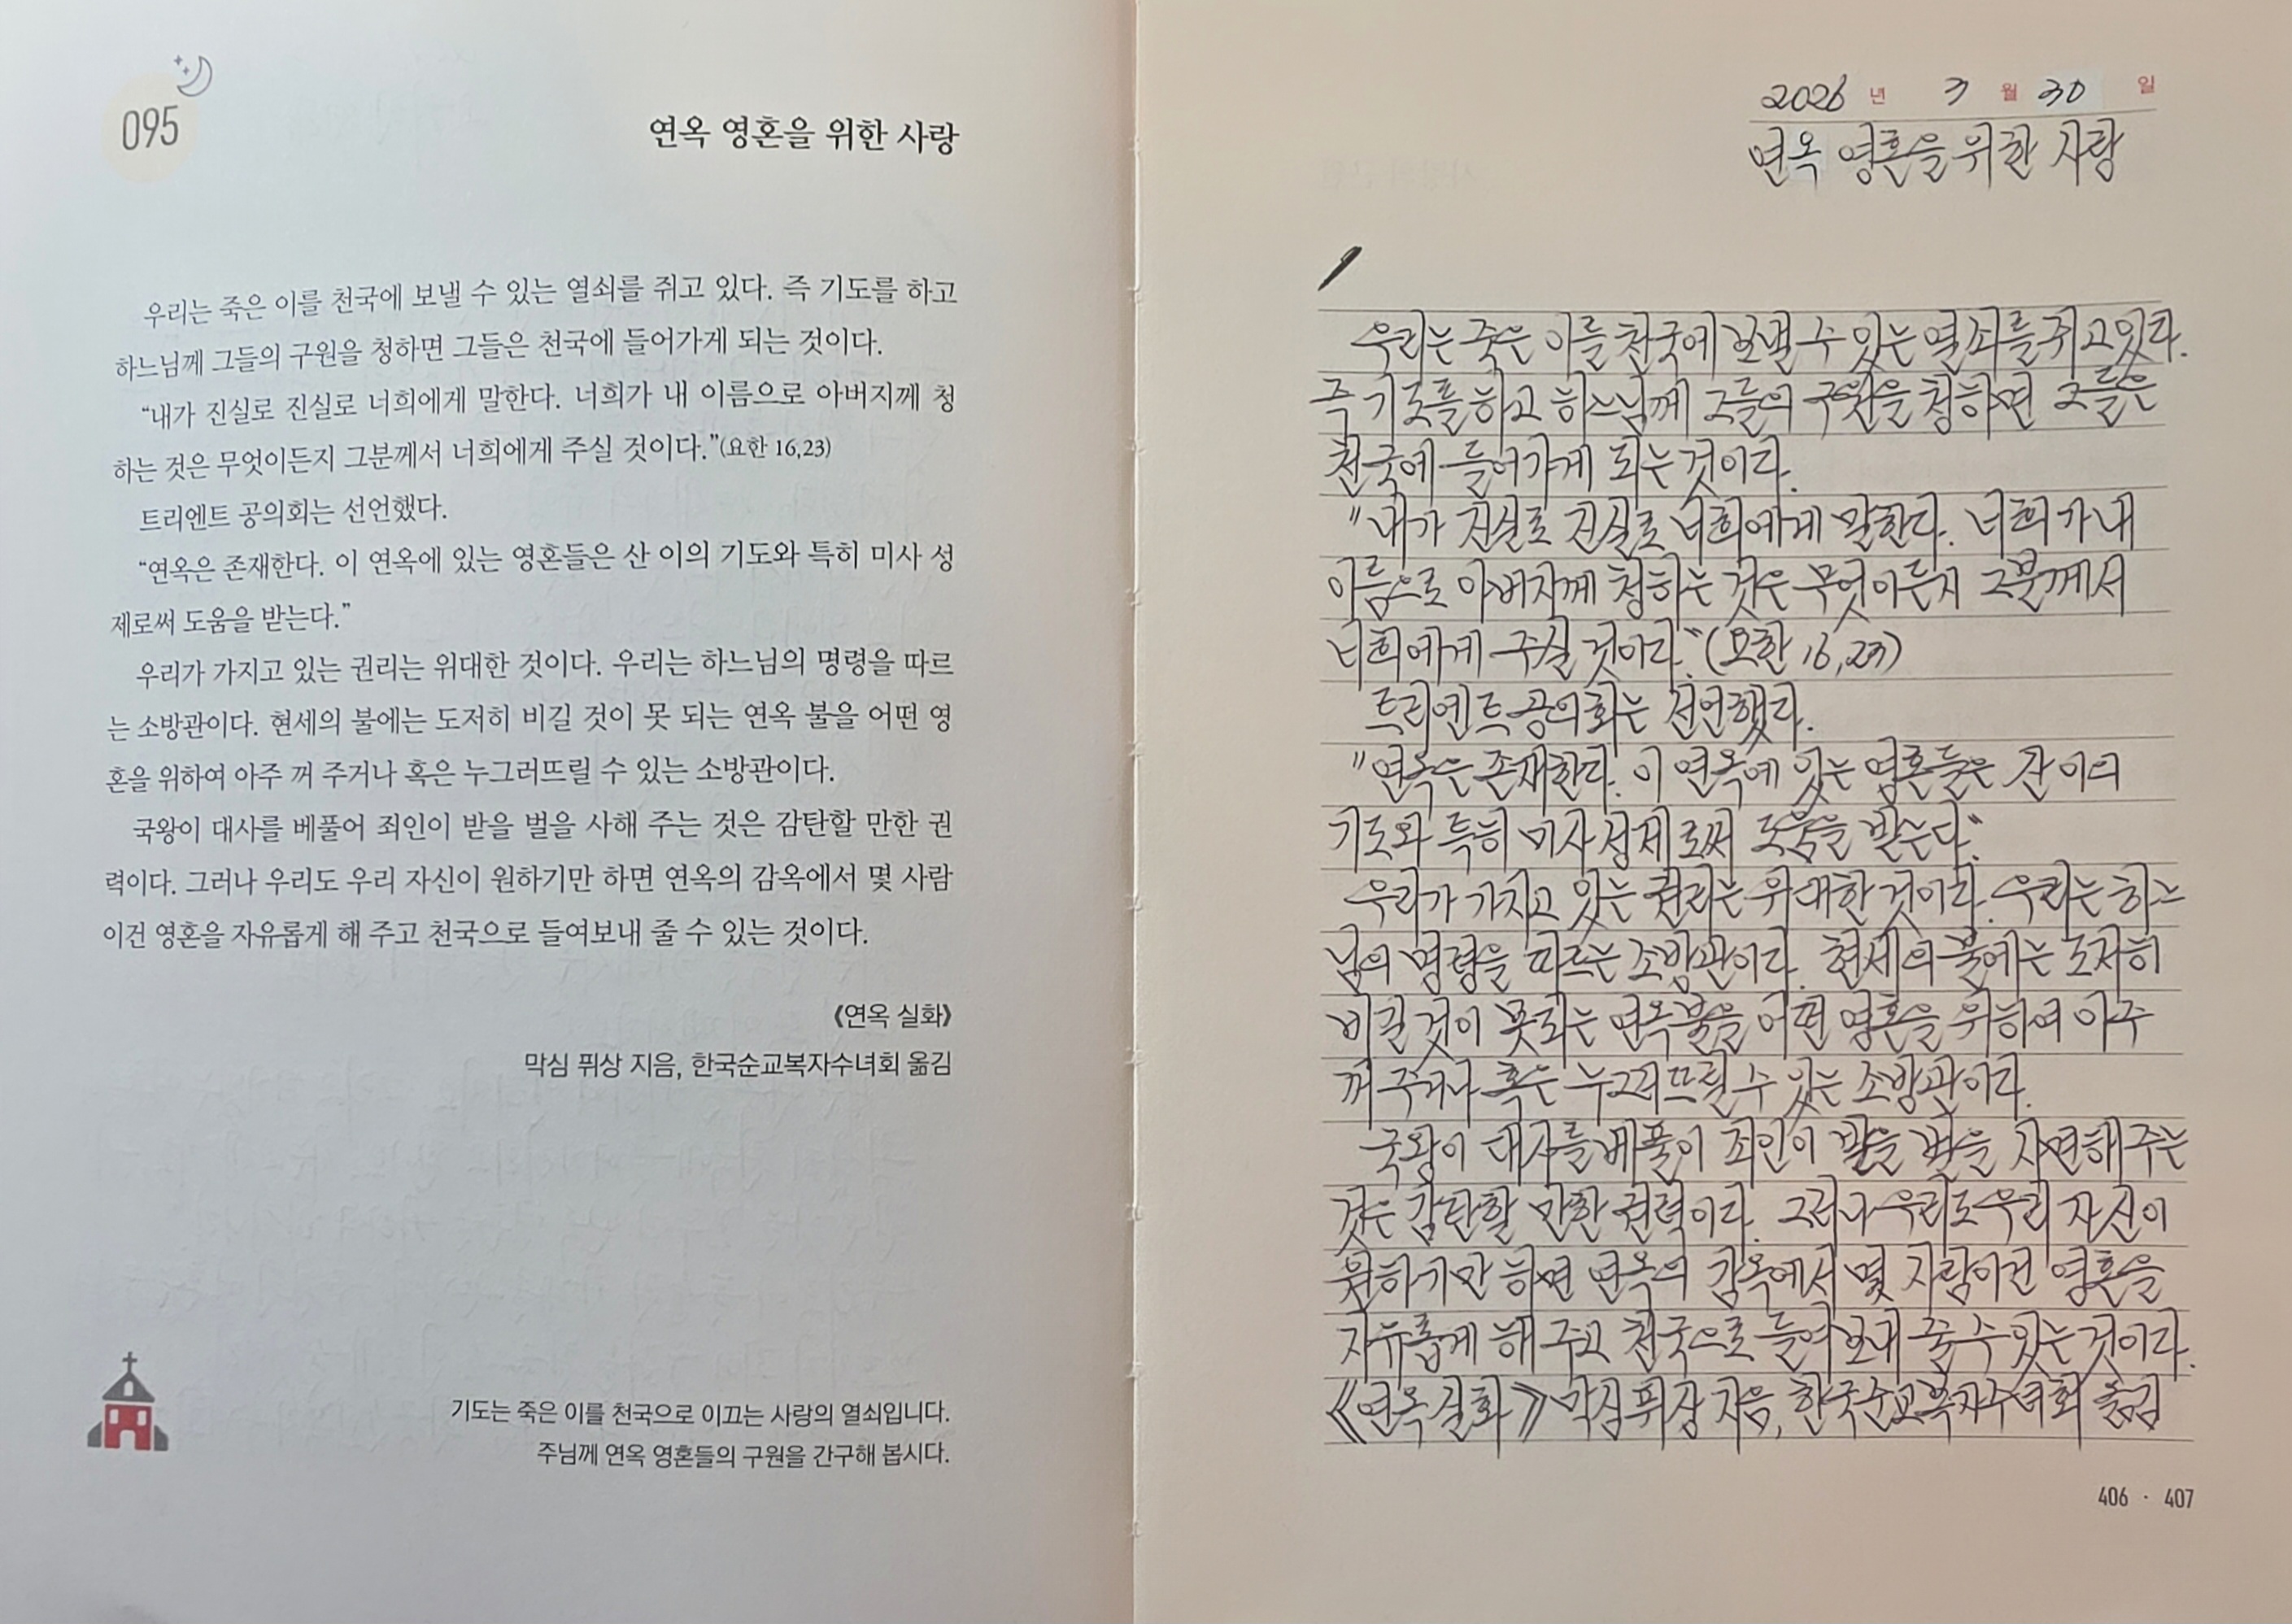 095
연옥 영혼을 위한 사랑
우리는 죽은 이를 천국에 보낼 수 있는 열쇠를 쥐고 있다. 즉 기도를 하고
하느님께 그들의 구원을 청하면 그들은 천국에 들어가게 되는 것이다.
“내가 진실로 진실로 너희에게 말한다. 너희가 내 이름으로 아버지께 청
하는 것은 무엇이든지 그분께서 너희에게 주실 것이다.”(요한 16,23)
트리엔트 공의회는 선언했다.
“연옥은 존재한다. 이 연옥에 있는 영혼들은 산 이의 기도와 특히 미사 성
제로써 도움을 받는다.”
우리가 가지고 있는 권리는 위대한 것이다. 우리는 하느님의 명령을 따르
는 소방관이다. 현세의 불에는 도저히 비길 것이 못 되는 연옥 불을 어떤 영
혼을 위하여 아주 꺼 주거나 혹은 누그러뜨릴 수 있는 소방관이다.
국왕이 대사를 베풀어 죄인이 받을 벌을 사해 주는 것은 감탄할 만한 권
력이다. 그러나 우리도 우리 자신이 원하기만 하면 연옥의 감옥에서 몇 사람
이건 영혼을 자유롭게 해 주고 천국으로 들여보내 줄 수 있는 것이다.
《연옥 실화》
막심 퓌상 지음, 한국순교복자수녀회 옮김
기도는 죽은 이를 천국으로 이끄는 사랑의 열쇠입니다.
주님께 연옥 영혼들의 구원을 간구해 봅시다.
2026 년 3 월 30 일
연옥 영혼을 위한 사랑
우리는 죽은 이를 천국에 보낼 수 있는 열쇠를 쥐고 있다.
즉 기도를 하고 하느님께 그들의 구원을 청하면 그들은
천국에 들어가게 되는 것이다.
"내가 진실로 진실로 너희에게 말한다. 너희가 내
이름으로 아버지께 청하는 것은 무엇이든지 그분께서
너희에게 주실 것이다."(요한 16,23)
트리엔트 공의회는 선언했다.
"연옥은 존재한다. 이 연옥에 있는 영혼들은 산 이의
기도와 특히 미사 성제로써 도움을 받는다."
우리가 가지고 있는 권리는 위대한 것이다. 우리는 하느
님의 명령을 따르는 소방관이다. 현세의 불에는 도저히
비길 것이 못되는 연옥 불을 어떤 영혼을 위하여 아주
꺼 주거나 혹은 누그러뜨릴 수 있는 소방관이다.
국왕이 대사를 베풀어 죄인이 받을 벌을 사면해 주는
것은 감탄할 만한 권력이다. 그러나 우리도 우리 자신이
원하기만 하면 연옥의 감옥에서 몇 사람이건 영혼을
자유롭게 해 주고 천국으로 들여보내 줄 수 있는 것이다.
《연옥 실화》 막심 퓌상 지음, 한국순교복자수녀회 옮김
406 · 407